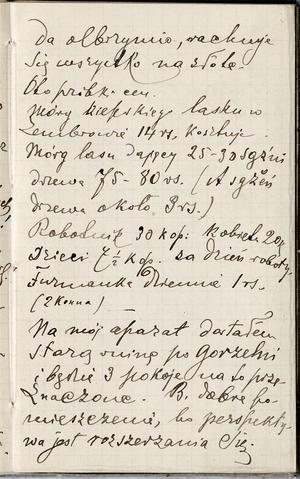 da olbrzymio, rachuje
się wszystko na złoto.
Oto próbka cen.
Mórg kiepskiego lasku w
14 rs. kosztuje.
Mórg lasu dający 25-30 sążni
drzewa 75-80 rs. (A sążeń
drzewa około 3 rs.)
Robotnik 30 kop: Kobieta 20,
Dzieci 7 ½ kop. za dzień roboty,
Furmanka dziennie 1 rs.
(2 konna)
Na mój aparat dostałem
starą ruinę po gorzelni
i będzie 3 pokoje na to prze-
znaczone. B. dobre po-
mieszczenie, bo perspekty-
wa jest rozszerzania się.